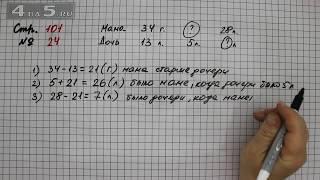 4 на 5.RU
Стр. 101 Мама 34 г. ? 28 л
№ 24 Дочь 13 л. 5 л. ? л
1) 34 - 13 = 21 (г.) мама старше дочери
2) 5 + 21 = 26 (л) было маме, когда дочери было 5 л
3) 28 - 21 = 7 (л) было дочери, когда маме